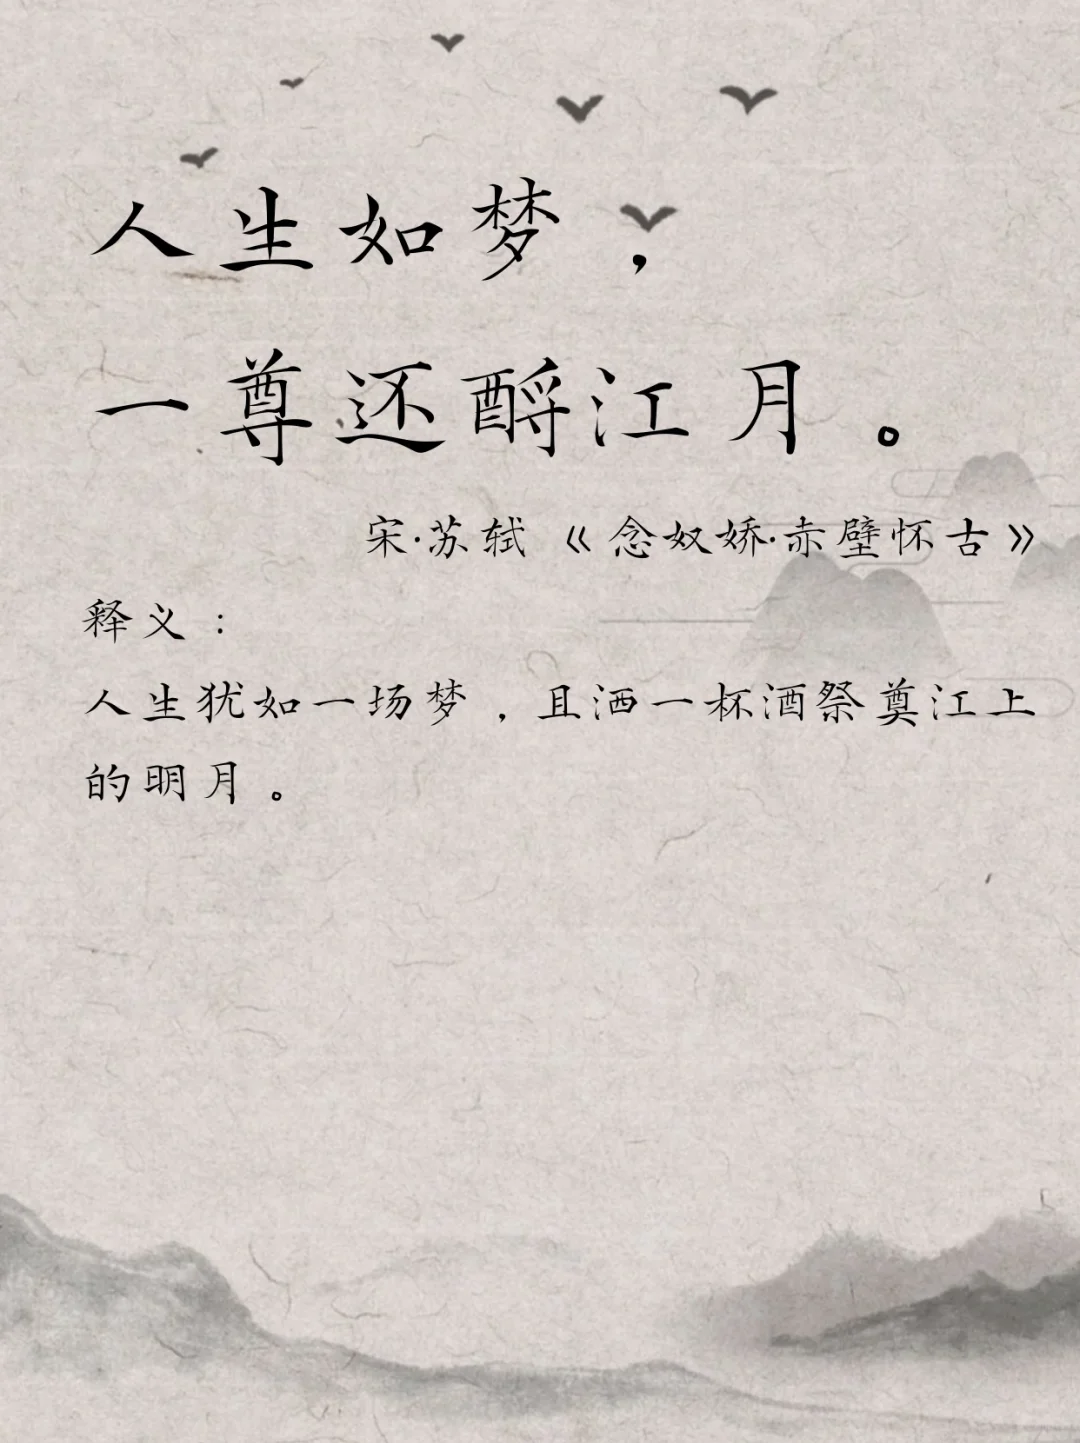 人生如梦，
一尊还酹江月。
宋·苏轼《念奴娇·赤壁怀古》
释义：
人生犹如一场梦，且洒一杯酒祭奠江上
的明月。